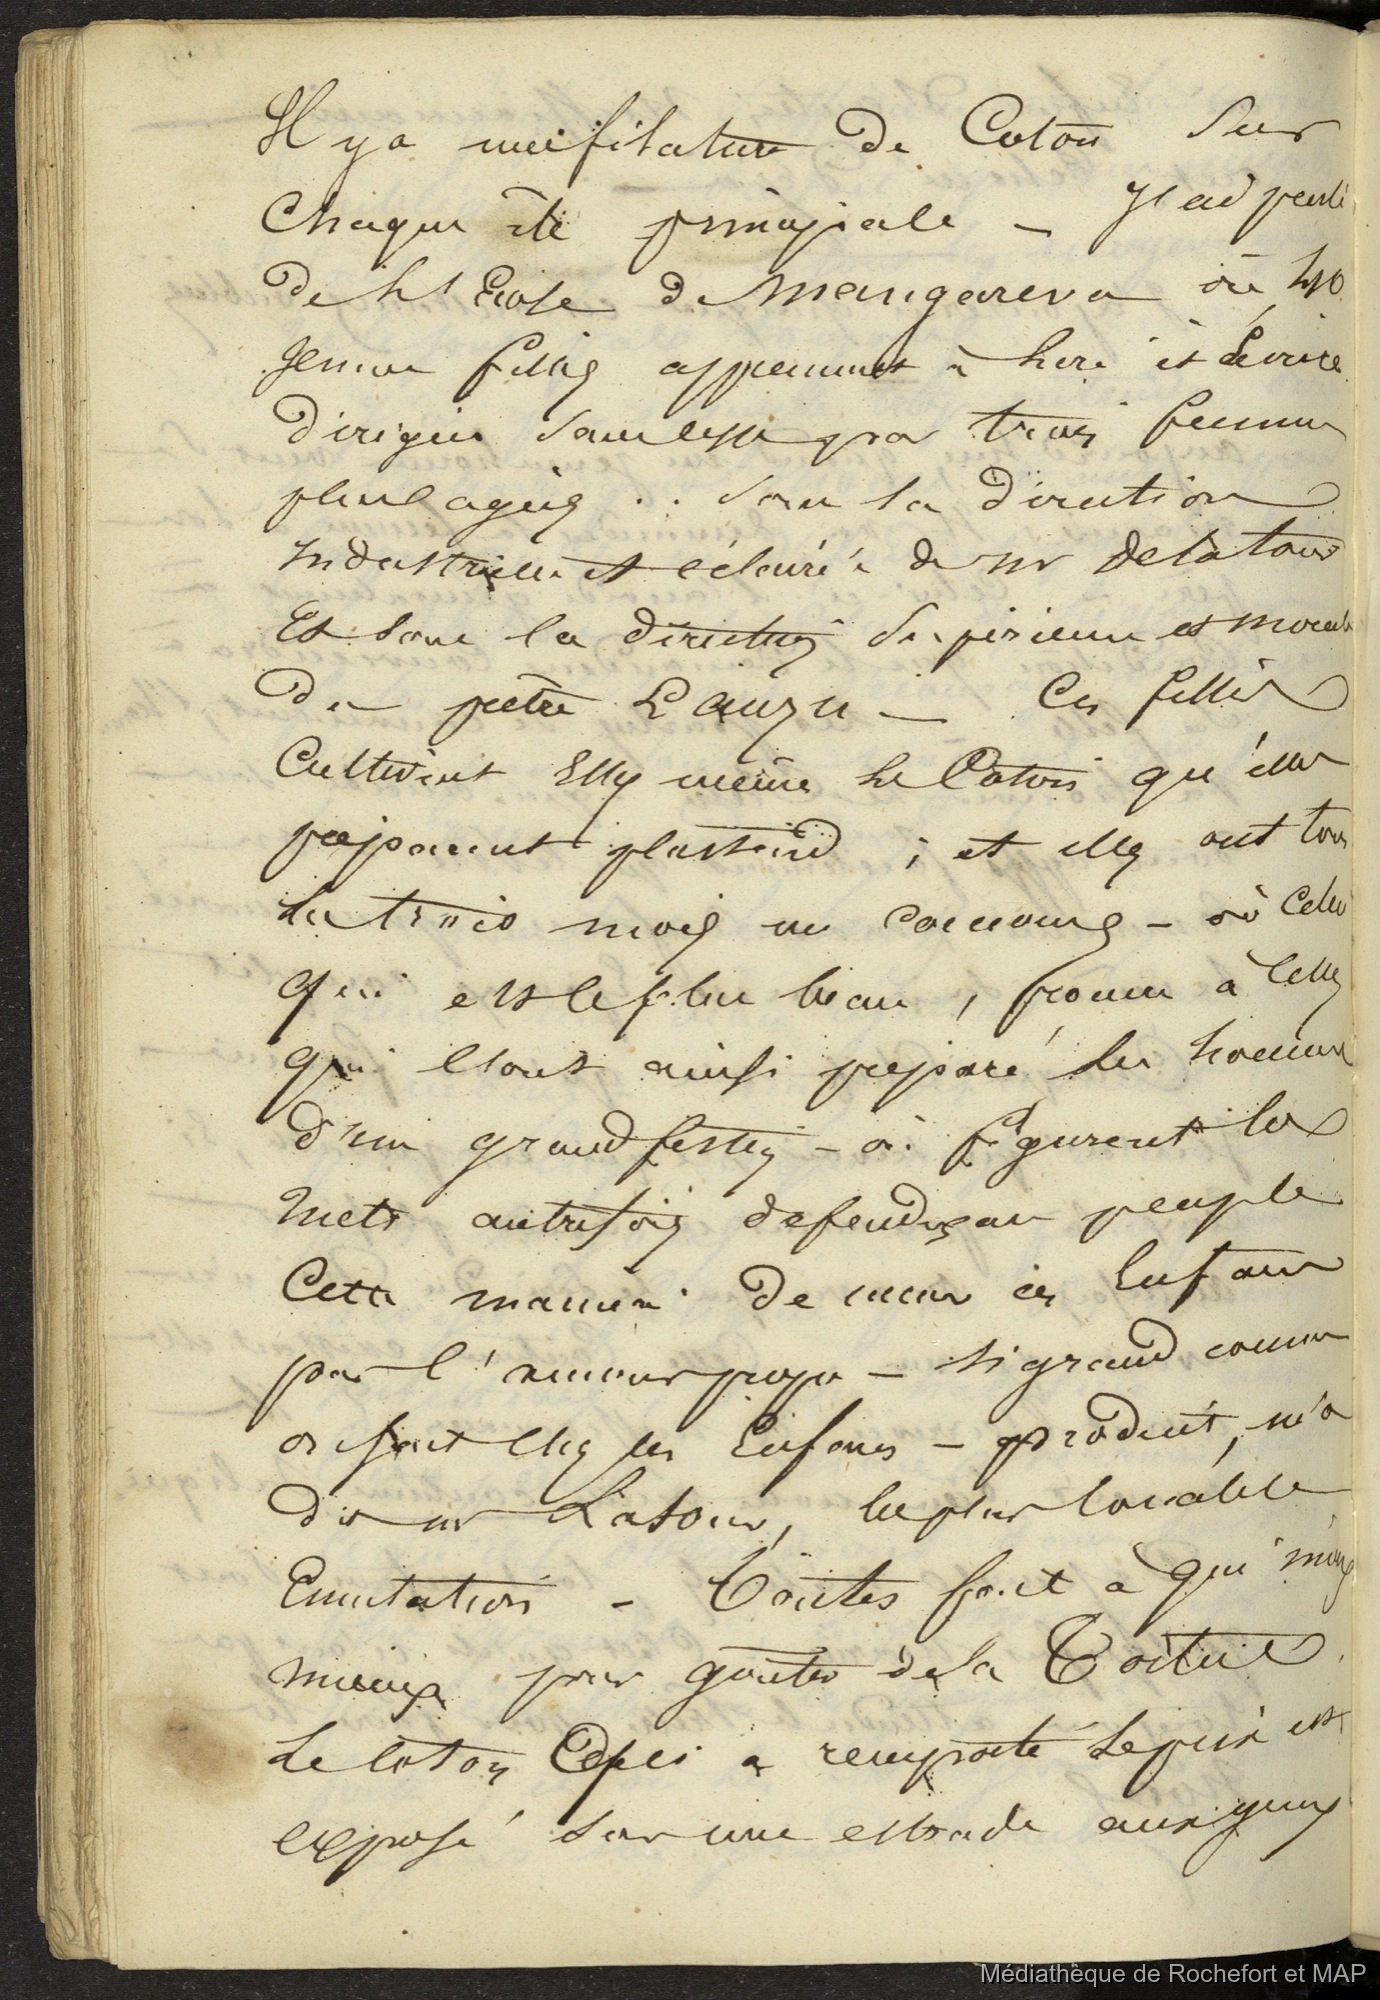 Il y a une filature de Coton Sur
Chaque île principale — J'ai parlé
de l'Ecole de Mangareva où 40
Jeunes filles apprennent à lire et Ecrire
Dirigées par trois femmes
plus agées .. sous la Direction
industrielle et éclairée de Mr Delatour
Et sous la direction Supérieure et morale
Du père Lauzu — Ces filles
Cultivent Elles même le Coton qu'elles
préparent plus tard ; et elles ont tous
les trois mois un concours — où celui
qui est le plus beau, procure à celles
qui l'ont ainsi préparé les honneurs
d'un grand festin — où figurent les
mets autrefois defendus au peuple
Cette maniere de mener ces Enfans
par l'amour propre — si grand comme
on sait chez les Enfans — produit, m'a
dit Mr Latour, la plus louable
Emulation — Toutes font à qui mieux
mieux pour gouter de la Tortue
Le coton Celui a remporté le prix est
exposé sur une estrade aux yeux
Médiathèque de Rochefort et MAP